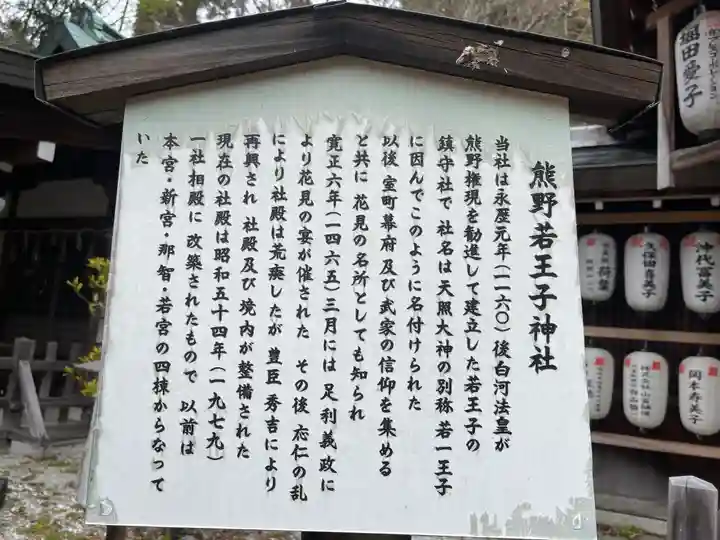 熊野若王子神社
当社は永歴元年（一一六〇）後白河法皇が
熊野権現を勧進して建立した若王子の
鎮守社で 社名は天照大神の別称 若一王子
に因んでこのように名付けられた
以後 室町幕府 及び武家の信仰を集める
と共に 花見の名所としても知られ
寛正六年（一四六五）三月には 足利義政に
より花見の宴が催された その後 応仁の乱
により 社殿は荒癈したが 豊臣 秀吉により
再興され 社殿及び 境内が整備された
現在の社殿は昭和五十四年（一九七九）
一社相殿に 改築されたもので 以前は
本宮・新宮・那智・若宮の四棟からなって
いた
堀田愛子
沖代富美子
久保田喜美子
岡本寿美子